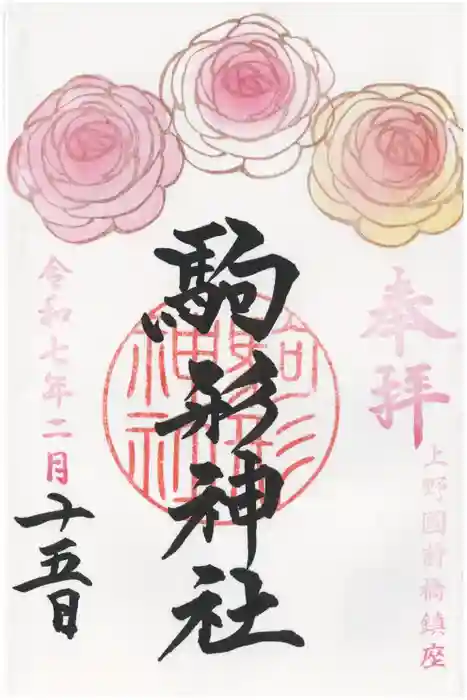 奉拝
上野國前橋鎮座
駒形神社
駒形神社
令和七年二月
十五日